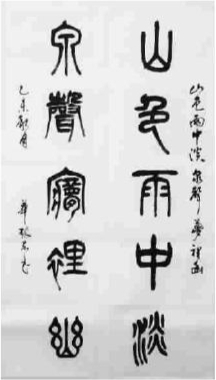 山色雨中淡 泉聲夢裡幽
山色雨中淡
泉聲夢裡幽
乙未秋月